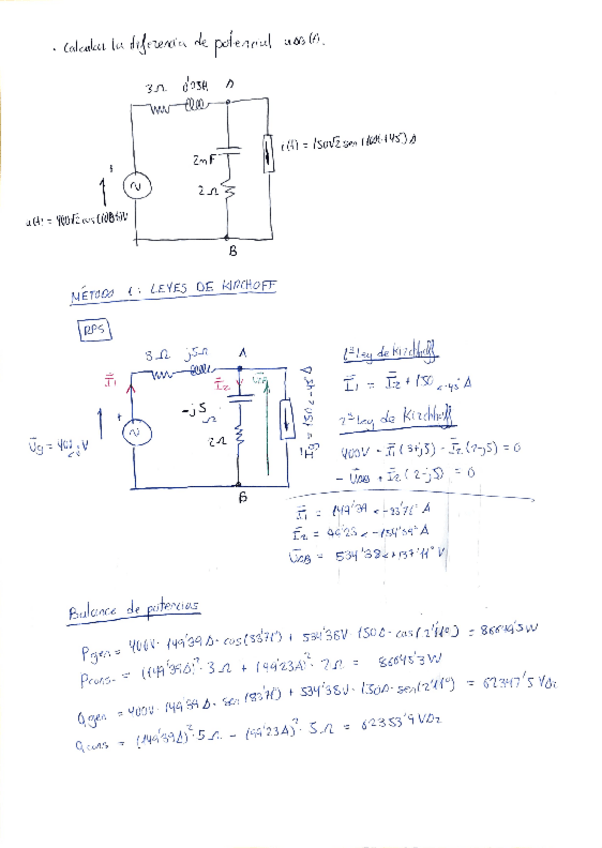 · Calcular la diferencia de potencial uAB(t).
3Ω 0'05H A
2mF
2Ω
B
MÉTODO 1: LEYES DE KIRCHOFF
RPS
3Ω j5Ω A
I1
I2
-j5
Ω
2Ω
+
B
1ª Ley de Kirchhoff
I1 = I2 + 150 <-45° A
2ª Ley de Kirchhoff
400V - I1(3+j5) - I2(2-j5) = 0
- UAB + I2(2-j5) = 0
I1 = 149'39 <-33'71° A
I2 =
UAB = 534'38 V
Balance de potencias
Pgen = 400V · 149'39A · cos(33'71°) + 534'38V · 150A · cos( ) =
Pcons = (149'39A)² · 3Ω + (99'23A)² · 2Ω = 86645'3W
Qgen = 400V · 149'39A · sen(33'71°) + 534'38V · 150A · sen( ) = 62347'5 VAr
Qcons = (149'39A)² · 5Ω - (99'23A)² · 5Ω = 62353'9 VAr